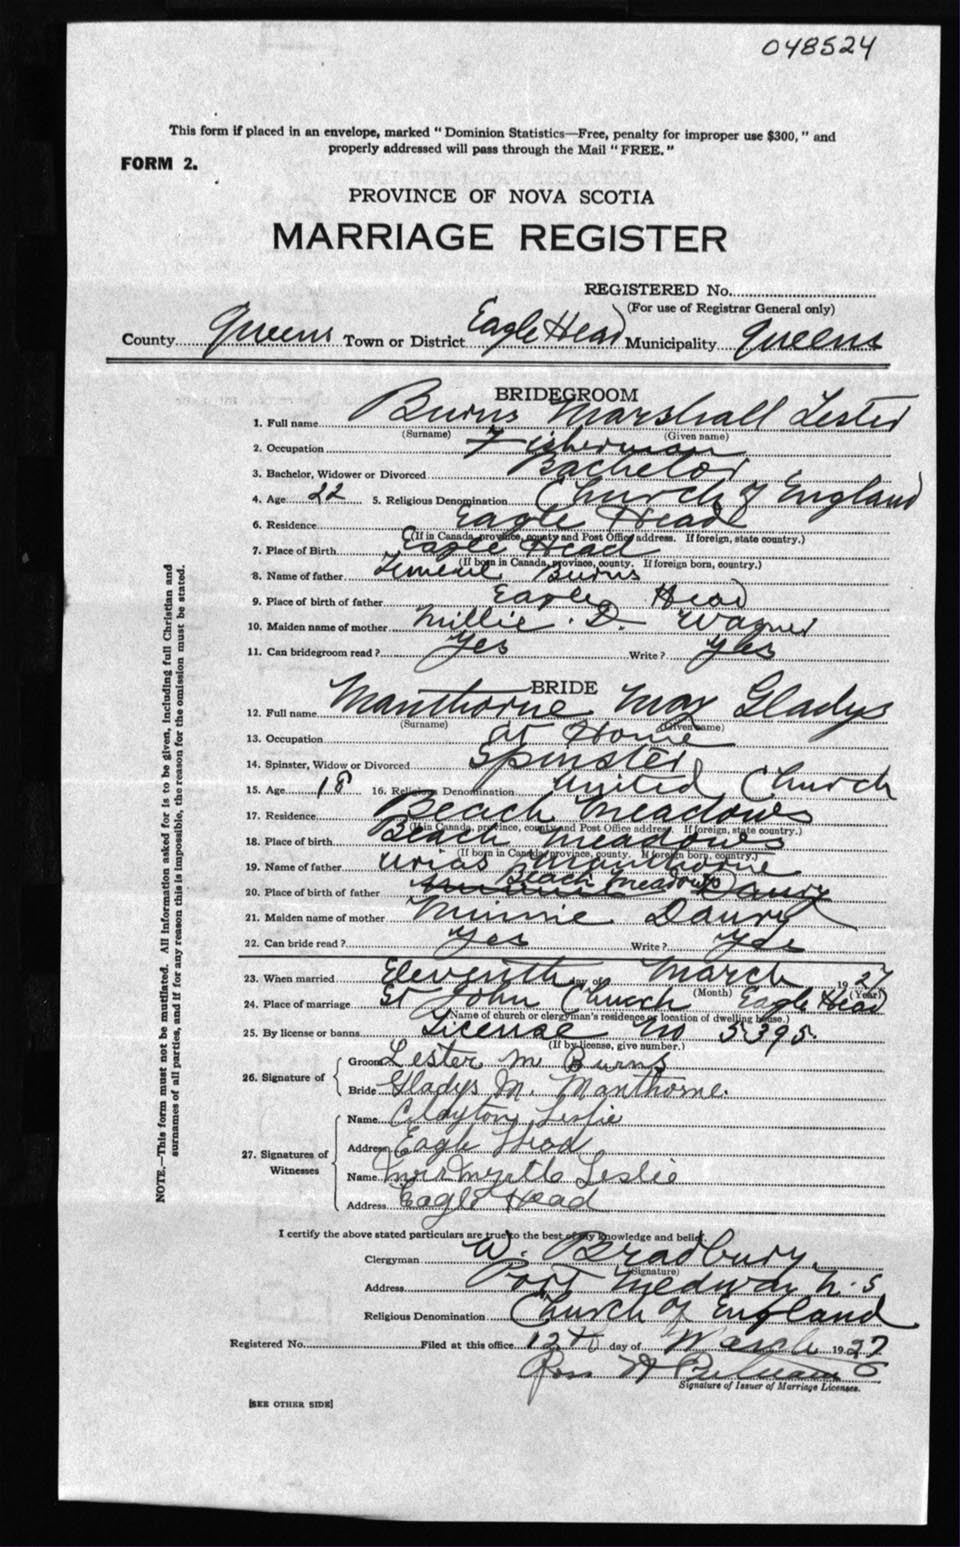 048524
This form if placed in an envelope, marked "Dominion Statistics—Free, penalty for improper use $300," and
properly addressed will pass through the Mail "FREE."
FORM 2.
PROVINCE OF NOVA SCOTIA
MARRIAGE REGISTER
REGISTERED No.
(For use of Registrar General only)
County Queens Town or District Eagle Head Municipality Queens
BRIDEGROOM
1. Full name Burns Marshall Lester
(Surname) (Given name)
2. Occupation Fisherman
3. Bachelor, Widower or Divorced Bachelor
4. Age 22 5. Religious Denomination Church of England
6. Residence Eagle Head
(If in Canada, province, county and Post Office address. If foreign, state country.)
7. Place of Birth Eagle Head
(If born in Canada, province, county. If foreign born, country.)
8. Name of father Burns
9. Place of birth of father Eagle Head
10. Maiden name of mother Millie D. Wagner
11. Can bridegroom read? Yes Write? Yes
BRIDE
12. Full name Manthorne May Gladys
(Surname) (Given name)
13. Occupation at Home
14. Spinster, Widow or Divorced Spinster
15. Age 18 16. Religious Denomination United Church
17. Residence Beach Meadows
(If in Canada, province, county and Post Office address. If foreign, state country.)
18. Place of birth Beach Meadows
(If born in Canada, province, county. If foreign born, country.)
19. Name of father Urias Manthorne
20. Place of birth of father Beach Meadows
21. Maiden name of mother Minnie Daury
22. Can bride read? Yes Write? Yes
23. When married Eleventh day of March 1927
(Month) (Year)
24. Place of marriage St John Church Eagle Head
(Name of church or clergyman's residence or location of dwelling house.)
25. By license or banns License No 5395.
(If by license, give number.)
26. Signature of
Groom Lester M Burns
Bride Gladys M. Manthorne.
27. Signatures of Witnesses
Name Clayton Leslie
Address Eagle Head
Name Mrs Myrtle Leslie
Address Eagle Head
I certify the above stated particulars are true to the best of my knowledge and belief.
Clergyman W. Bradbury.
(Signature)
Address Port Medway N.S
Religious Denomination Church of England
Registered No. Filed at this office 12th day of March 1927
Ross
Signature of Issuer of Marriage Licenses.
[SEE OTHER SIDE]
NOTE.—This form must not be mutilated. All information asked for is to be given, including full Christian and
surnames of all parties, and if for any reason this is impossible, the reason for the omission must be stated.